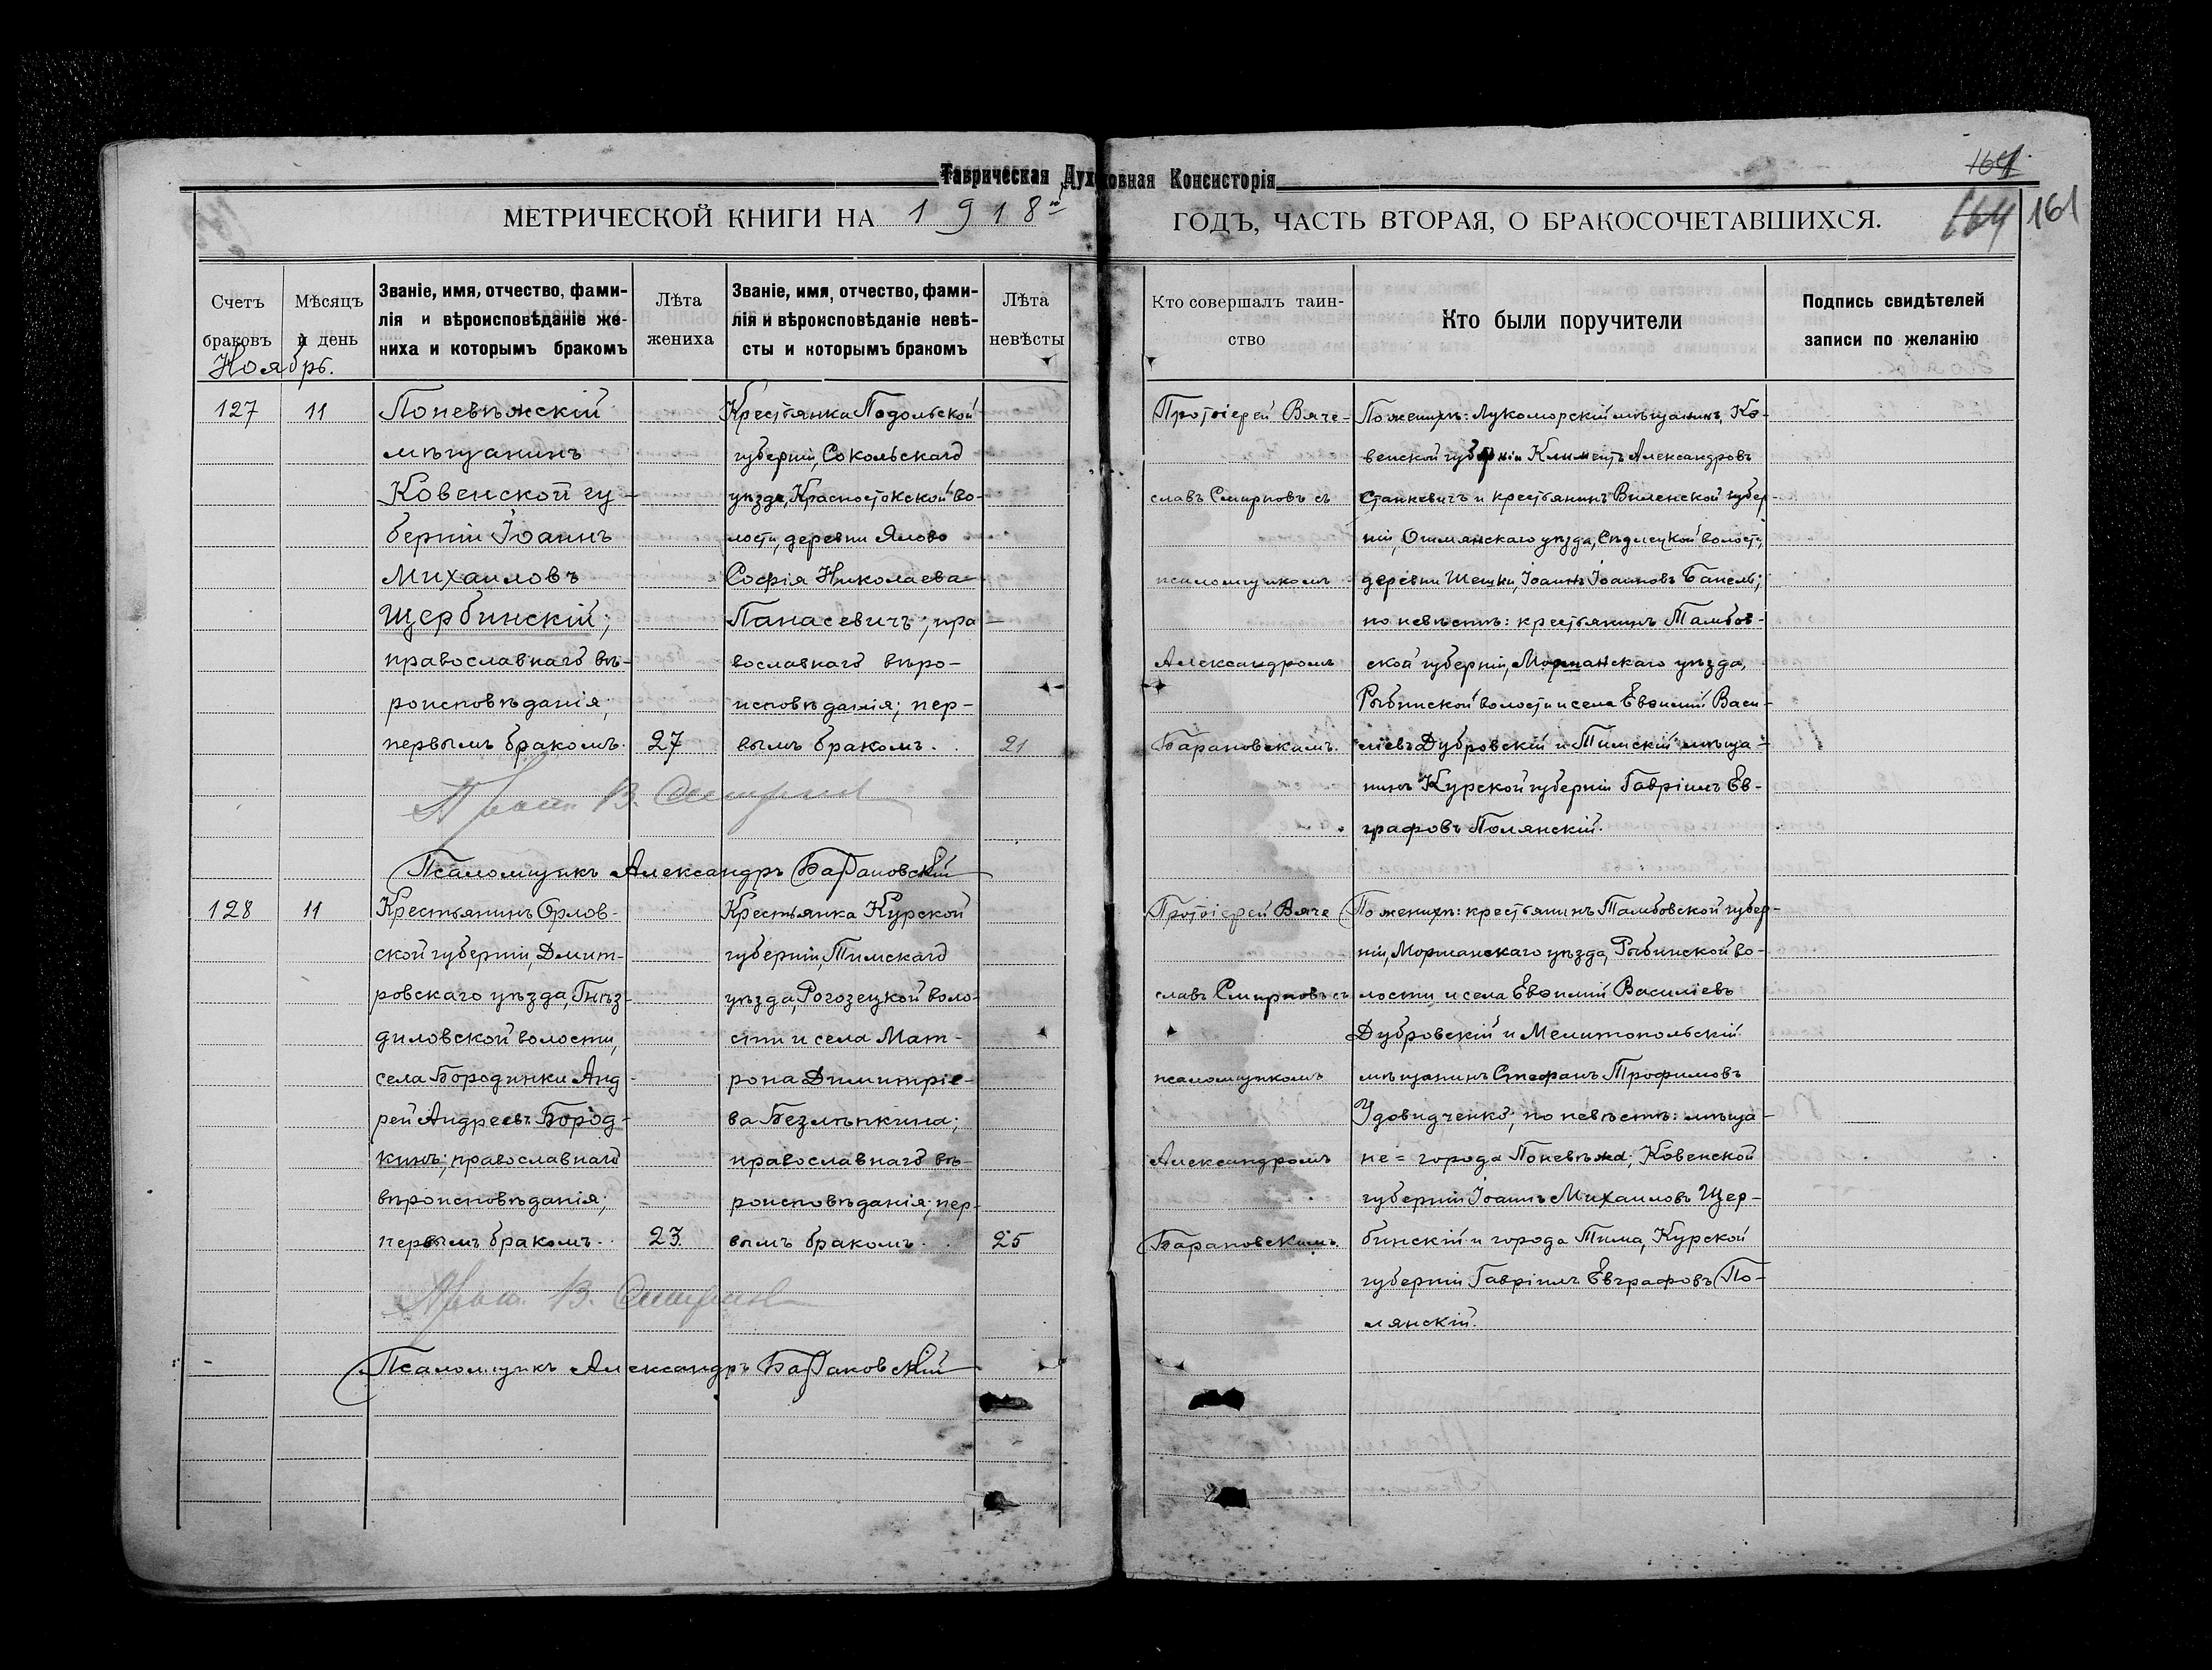 Таврическая Духовная Консисторія
164
МЕТРИЧЕСКОЙ КНИГИ НА 1918й ГОДЪ, ЧАСТЬ ВТОРАЯ, О БРАКОСОЧЕТАВШИХСЯ.
164 161
Счетъ браковъ
Мѣсяцъ и день
Званіе, имя, отчество, фами-
лія и вѣроисповѣданіе же-
ниха и которымъ бракомъ
Лѣта жениха
Званіе, имя, отчество, фами-
лія и вѣроисповѣданіе невѣ-
сты и которымъ бракомъ
Лѣта невѣсты
Кто совершалъ таин-
ство
Кто были поручители
Подпись свидѣтелей
записи по желанію
Ноябрь.
127
11
Поневѣжскій
мѣщанинъ
Ковенской гу-
берніи Іоаннъ
Михаиловъ
Щербинскій;
православнаго вѣ-
роисповѣданія;
первымъ бракомъ.
27
Крестьянка Подольской
губерніи, Сокольскаго
уѣзда, Красностокской во-
лости, деревни Ялово
Софія Николаева
Панасевичъ; пра-
вославнаго вѣро-
исповѣданія; пер-
вымъ бракомъ.
21
Протоіерей Вяче-
славъ Смирновъ съ
псаломщикомъ
Александромъ
Барановскимъ.
По женихѣ: Лукоморскій мѣщанинъ, Ко-
венской губерніи Климентъ Александровъ
Станкевичъ и крестьянинъ Виленской губер-
ніи, Ошмянскаго уѣзда, волости,
деревни Іоаннъ Іоанновъ
по невѣстѣ: крестьянинъ Тамбов-
ской губерніи, Моршанскаго уѣзда,
Рыбинской волости и села Евѳимій Васи-
ліевъ Дубровскій и Тимскій мѣща-
нинъ Курской губерніи Гавріилъ Ев-
графовъ Полянскій.
Прот. В. Смирновъ
Псаломщикъ Александръ Барановскій
128
11
Крестьянинъ Орлов-
ской губерніи, Дмит-
ровскаго уѣзда, Гнѣз-
диловской волости,
села Бородинки Анд-
рей Андреевъ Бород-
кинъ; православнаго
вѣроисповѣданія;
первымъ бракомъ.
23
Крестьянка Курской
губерніи, Тимскаго
уѣзда, Рогозецкой воло-
сти и села Мат-
рона Димитріе-
ва Безмѣнкина;
православнаго вѣ-
роисповѣданія; пер-
вымъ бракомъ.
25
Протоіерей Вяче
славъ Смирновъ съ
псаломщикомъ
Александромъ
Барановскимъ.
По женихѣ: крестьянинъ Тамбовской губер-
ніи, Моршанскаго уѣзда, Рыбинской во-
лости и села Евѳимій Василіевъ
Дубровскій и Мелитопольскій
мѣщанинъ Стефанъ Трофимовъ
Удовидченко; по невѣстѣ: мѣща-
не = города Поневѣжа, Ковенской
губерніи Іоаннъ Михаиловъ Щер-
бинскій и города Тима, Курской
губерніи Гавріилъ Евграфовъ По-
лянскій.
Прот. В. Смирновъ
Псаломщикъ Александръ Барановскій